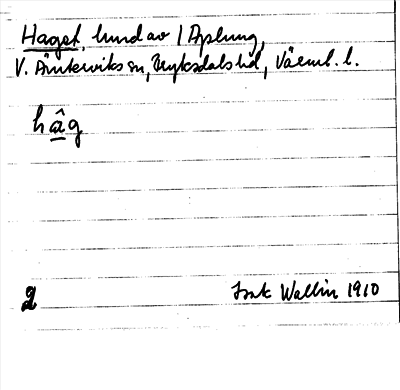 Haget, lund av 1 Aplung,
V. Ämtervik sn, Fryksdals hd, Värml. l.
hâg
2 Wallin 1910